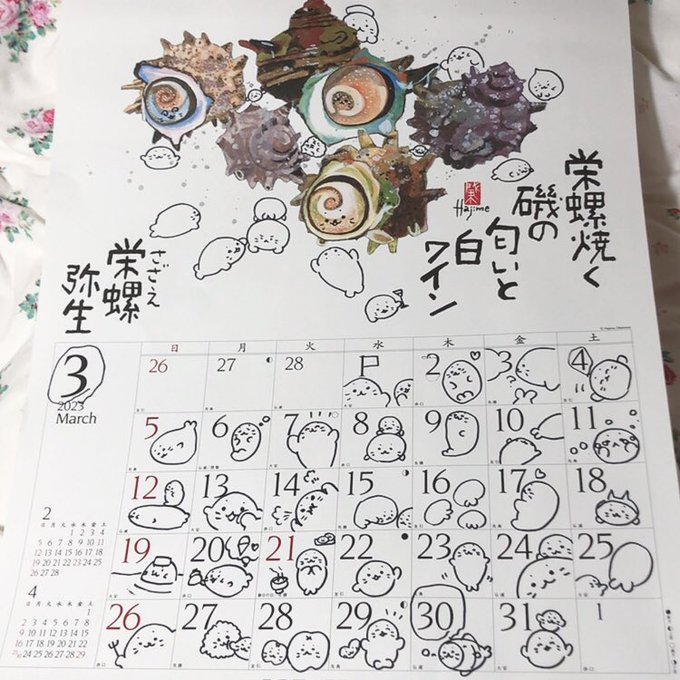 栄螺焼く
磯の
匂いと
白
ワイン
Hajime
さざえ
栄螺
弥生
日 月 火 水 木 金 土
3
2023
March
26 27 28 1 2 3 4
5 6 7 8 9 10 11
12 13 14 15 16 17 18
19 20 21 22 23 24 25
26 27 28 29 30 31 1
2
日 月 火 水 木 金 土
1 2 3 4
5 6 7 8 9 10 11
12 13 14 15 16 17 18
19 20 21 22 23 24 25
26 27 28
4
日 月 火 水 木 金 土
1
2 3 4 5 6 7 8
9 10 11 12 13 14 15
16 17 18 19 20 21 22
23/30 24 25 26 27 28 29